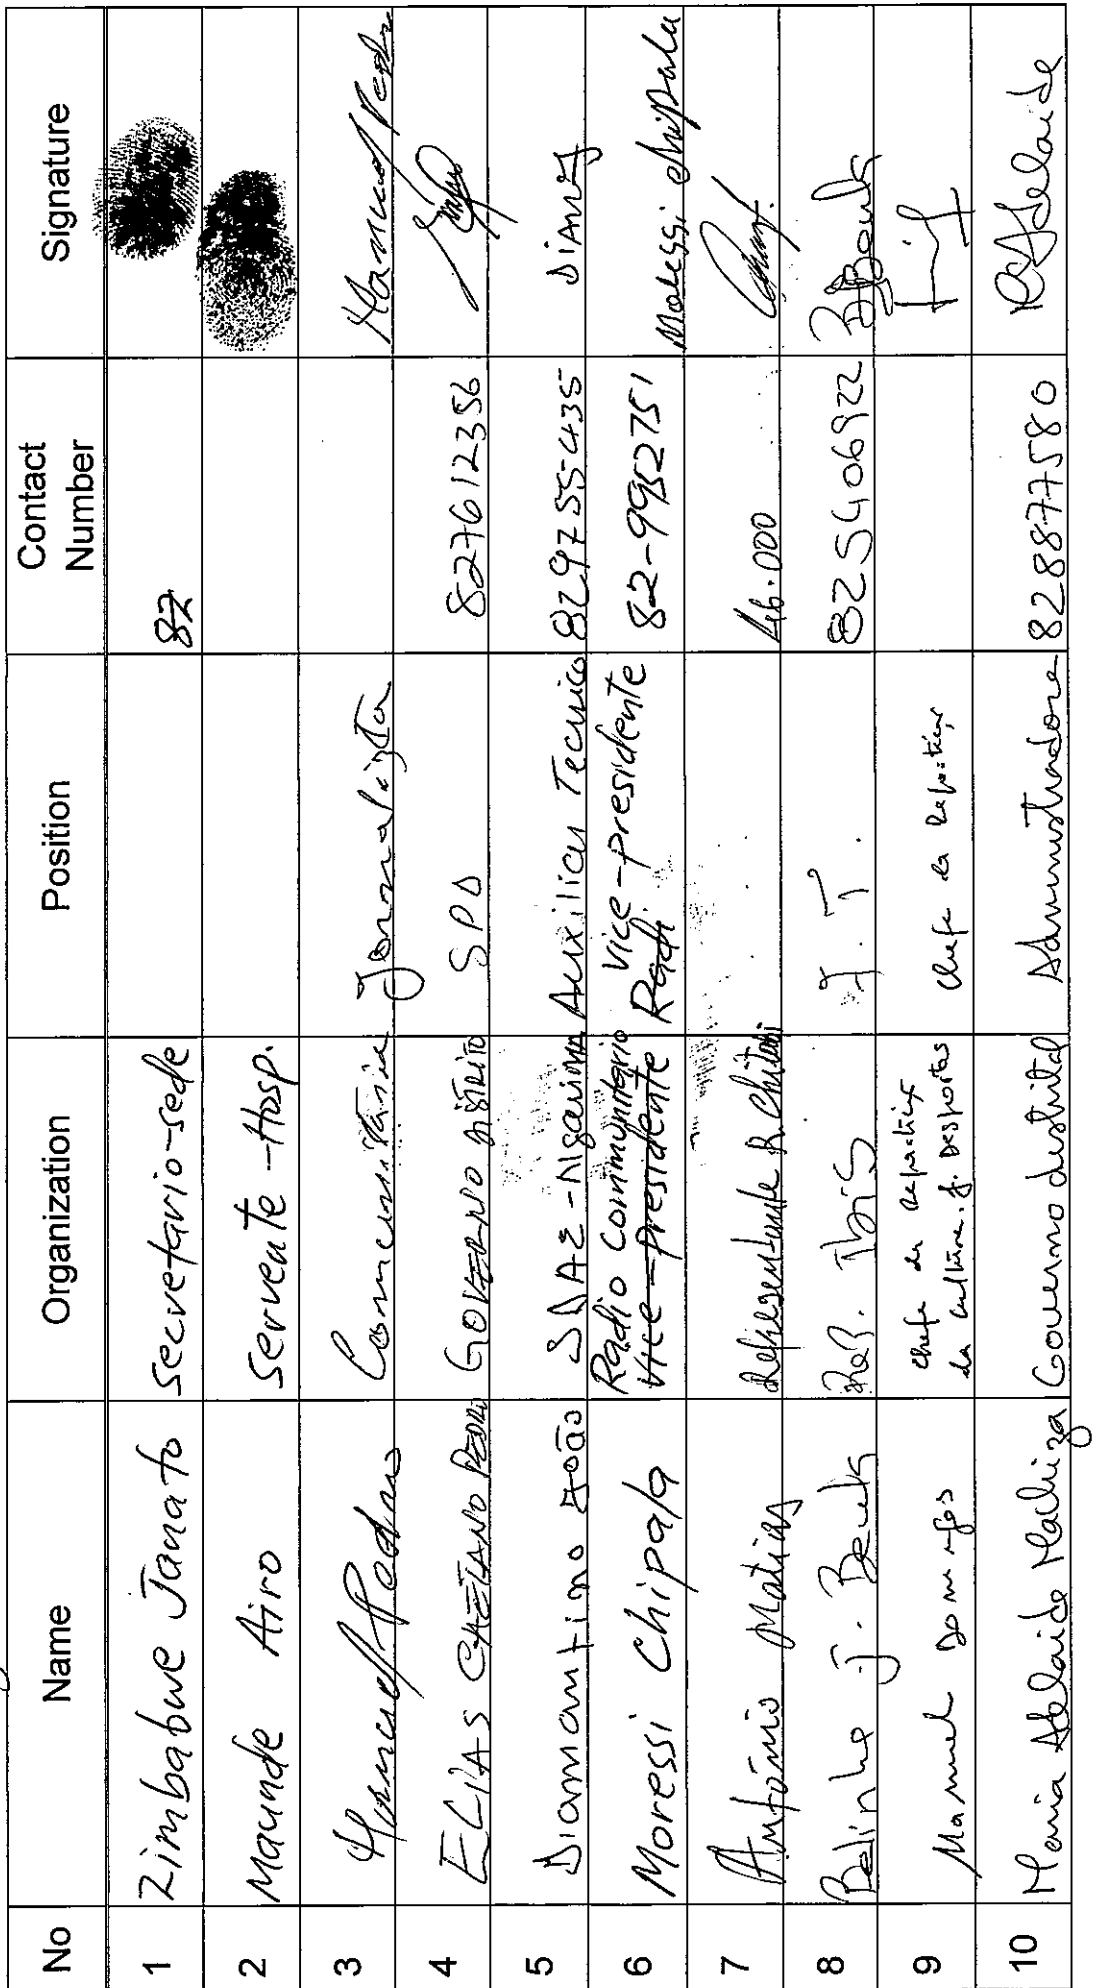 No Name Organization Position Contact Number Signature
1 Zimbabwe Janato Secretario-sede 82
2 Maunde Airo Servente-Hosp.
3 Manuel Pedro Comunitária Jornalista Manuel Pedro
4 ELIAS CAETANO PEDRO GOVERNO DISTRITO SPD 827612356
5 Diamantino João SDAE-Ngauma Auxiliar Tecnico 829755435 Diamantj
6 Moressi Chipala Radio Comunitario Vice-presidente Vice-presidente Radi. 82-9952751 Moressi Chipala
7 António Matias Representante R. Chitabi
8 Belinha J. Benta Res. Ibis I. T. 825406922
9 Manuel Domingos Chefe da repartição da cultura. J. Desportos Chefe da Repartição
10 Maria Adelaide Machiza Governo distrital Administradora 828877580 Adelaide